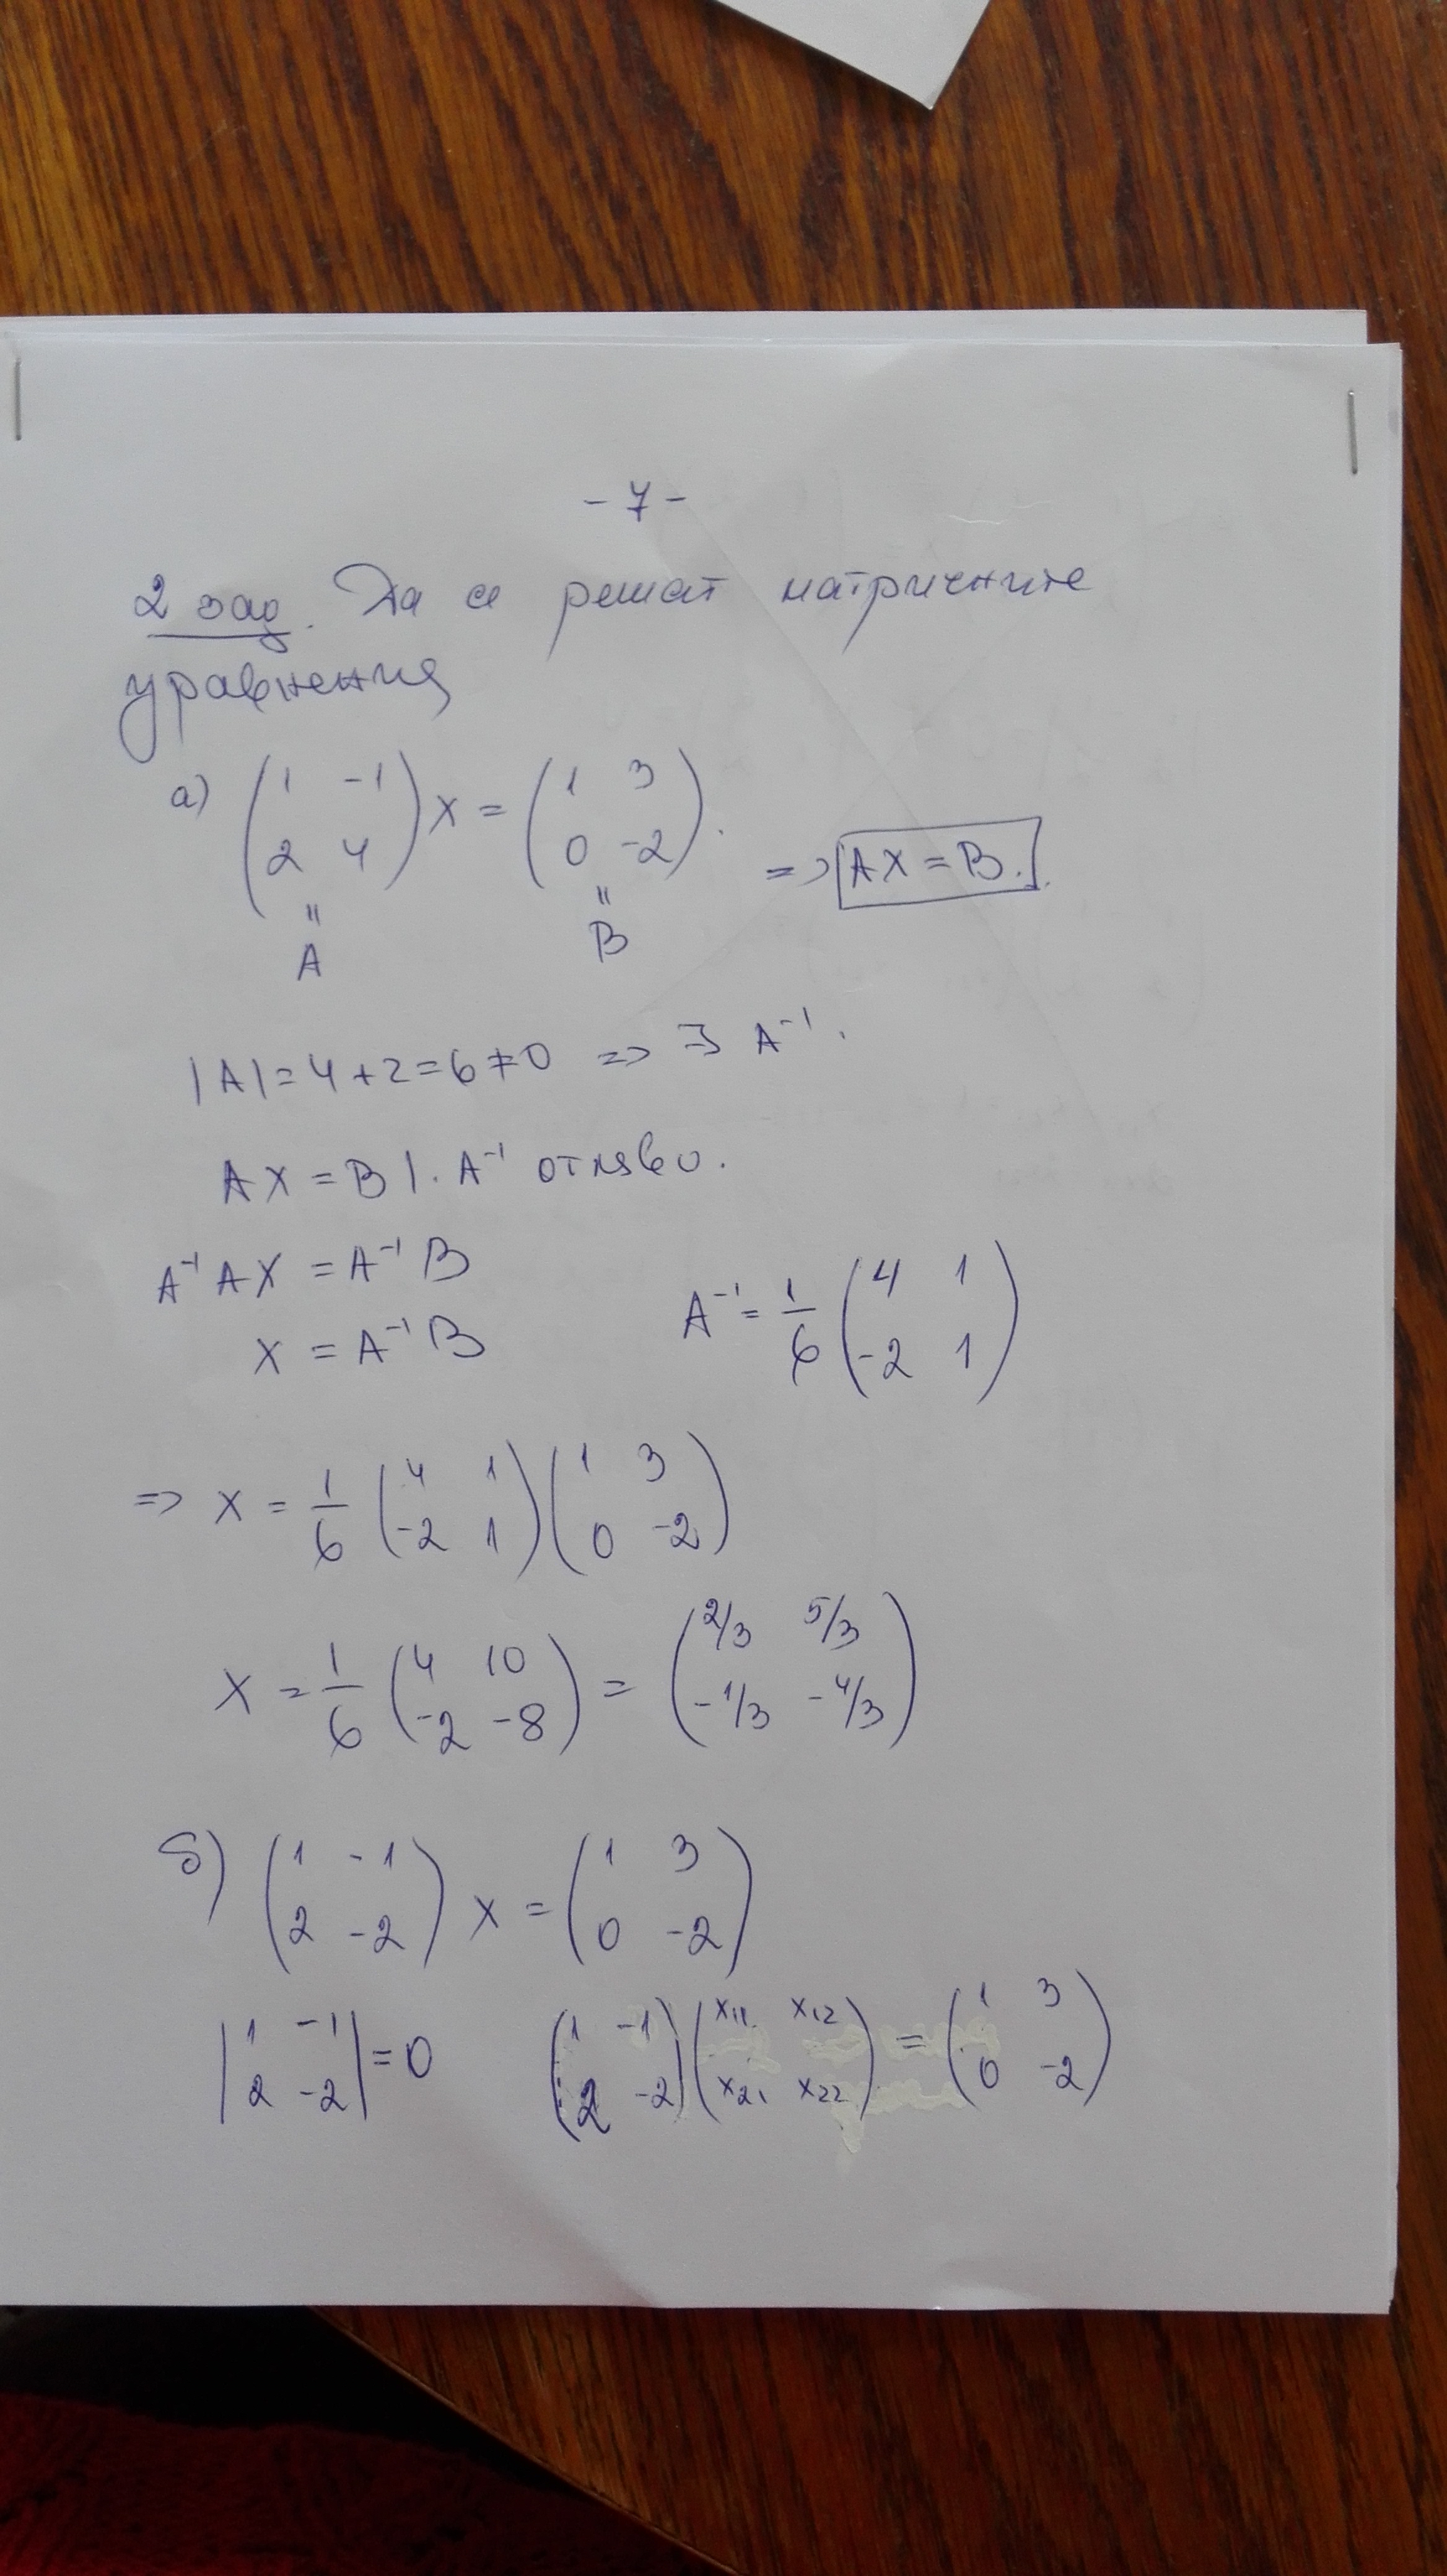 - 7 -
2 зад. Да се решат матричните
уравнения
а) (1 -1; 2 4) X = (1 3; 0 -2). => AX = B.
" "
A B
|A| = 4 + 2 = 6 ≠ 0 => ∃ A⁻¹.
AX = B |. A⁻¹ отляво.
A⁻¹AX = A⁻¹B
X = A⁻¹B A⁻¹ = 1/6 (4 1; -2 1)
=> X = 1/6 (4 1; -2 1)(1 3; 0 -2)
X = 1/6 (4 10; -2 -8) = (2/3 5/3; -1/3 -4/3)
б) (1 -1; 2 -2) X = (1 3; 0 -2)
|1 -1; 2 -2| = 0 (1 -1; 2 -2)(x₁₁ x₁₂; x₂₁ x₂₂) = (1 3; 0 -2)